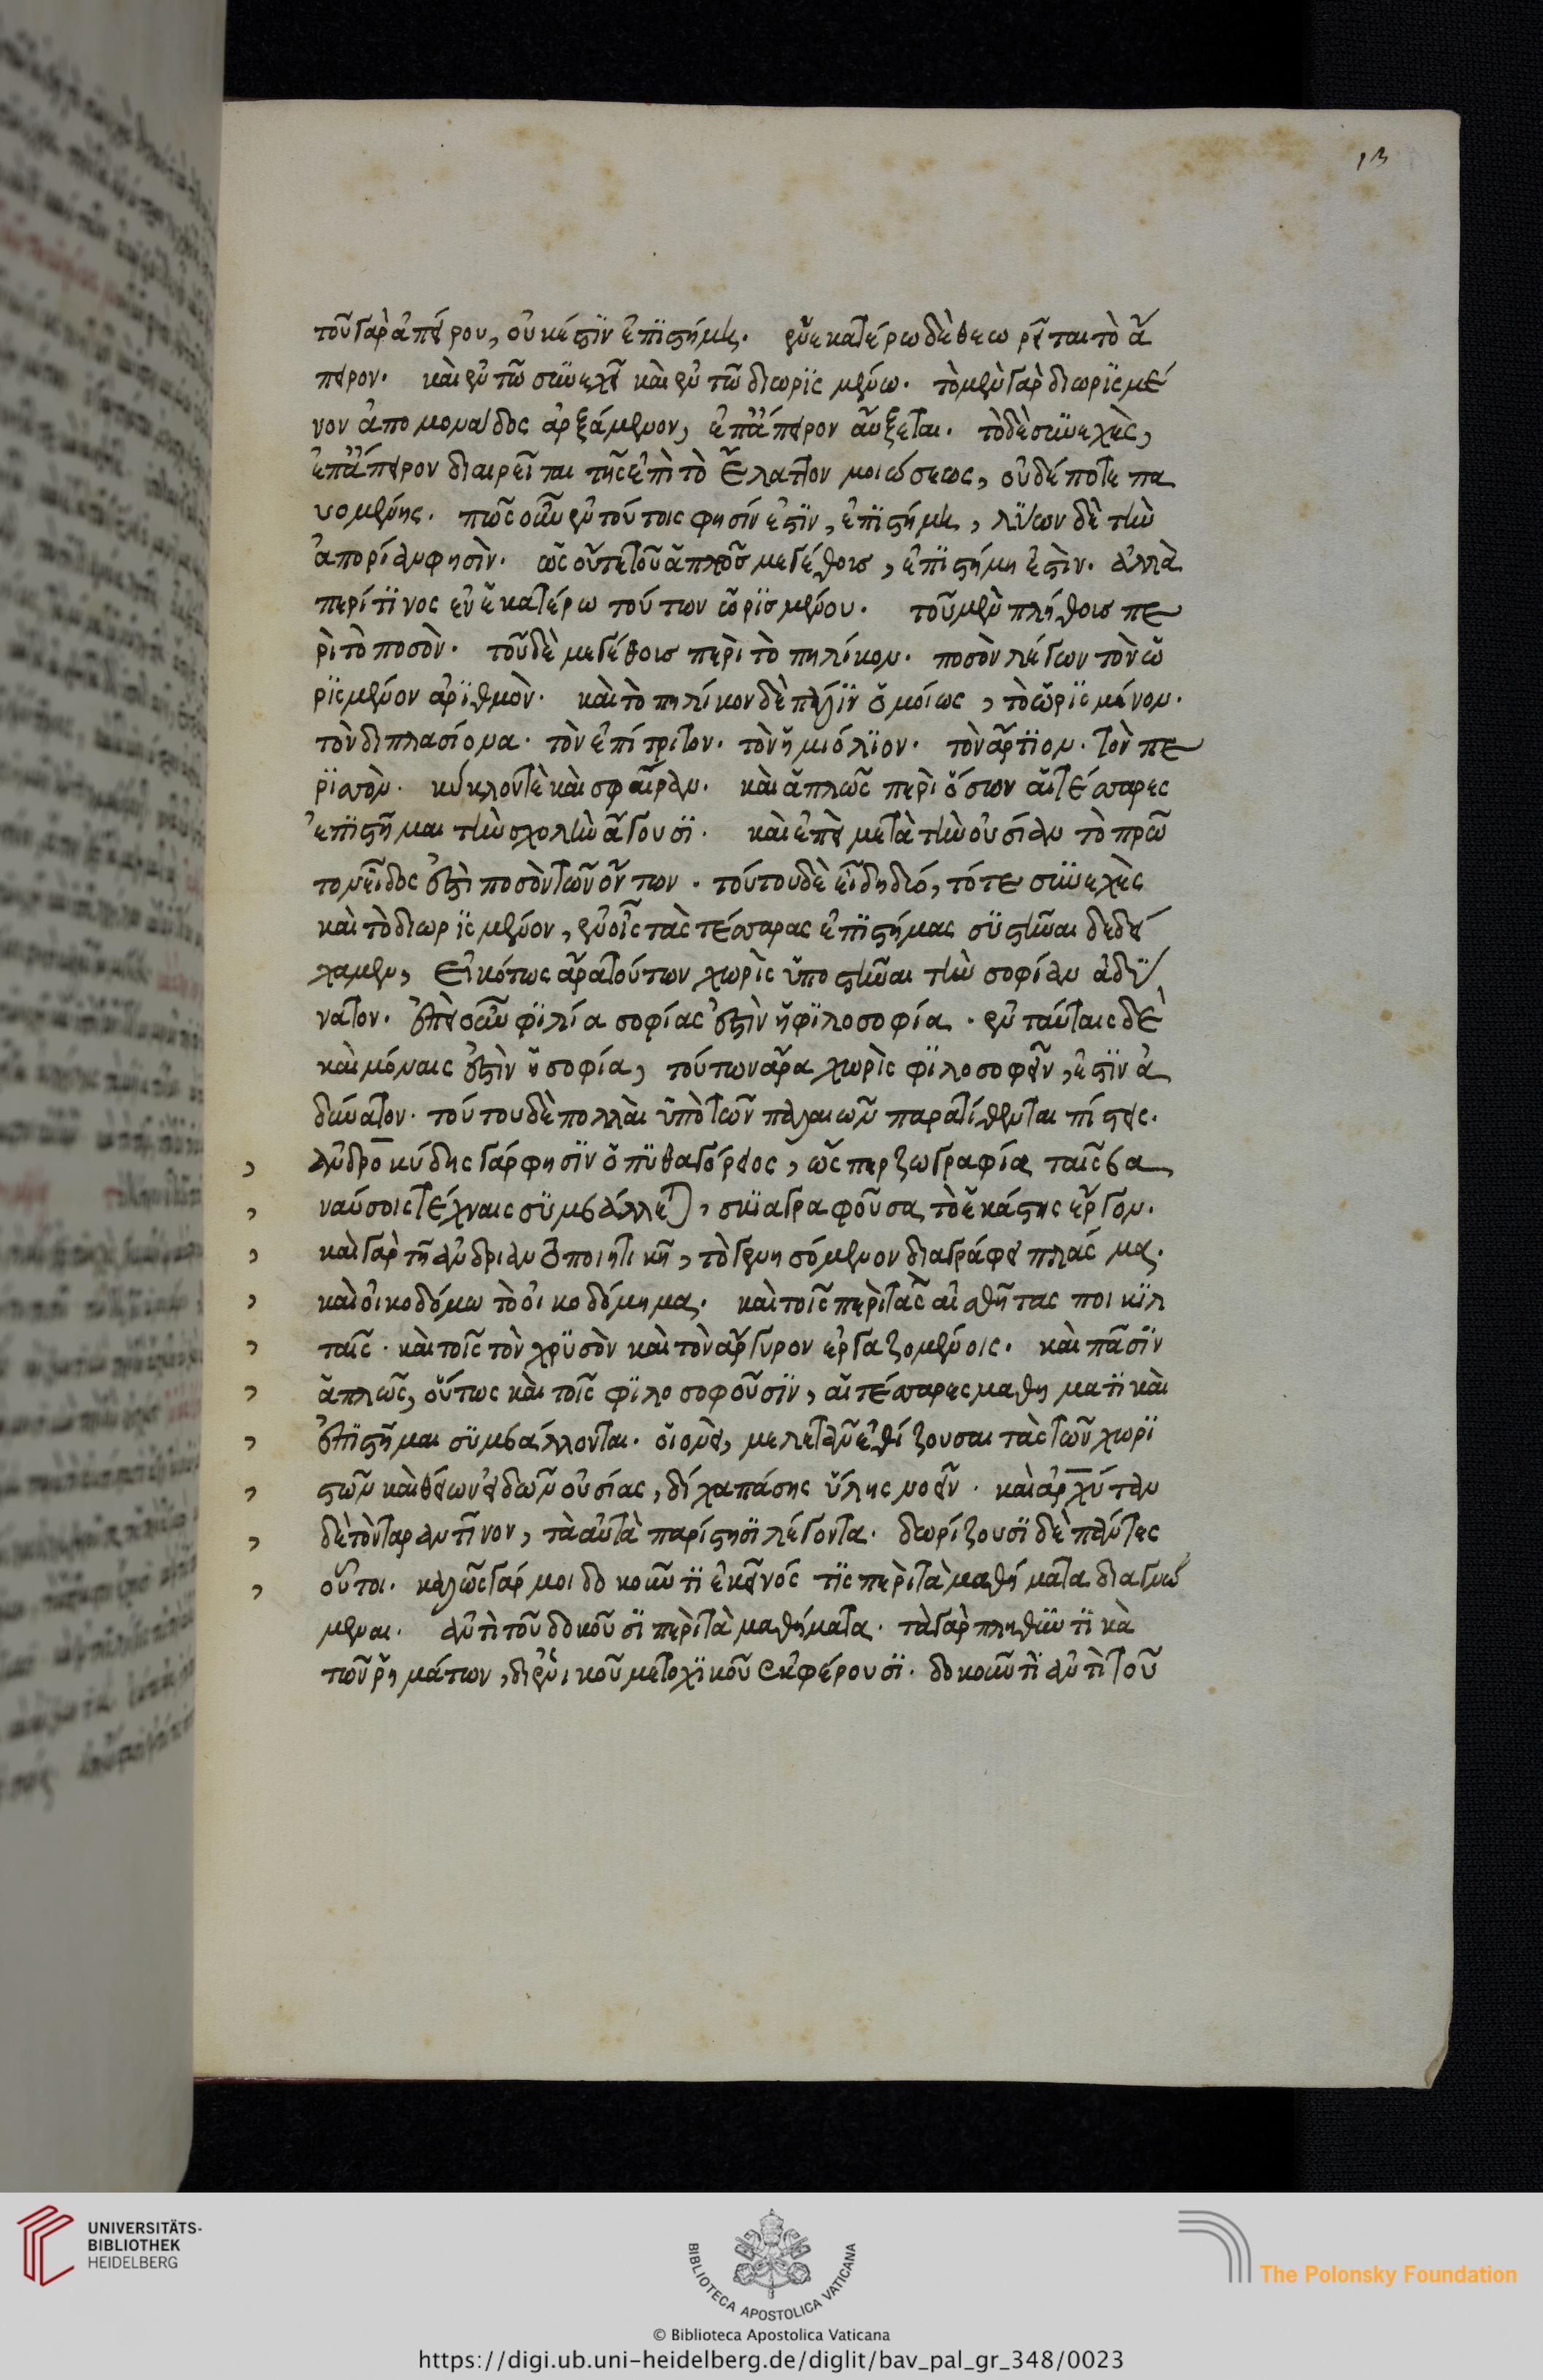 13
τοῦ γὰρ ἀπείρου, οὐκ ἔστιν ἐπιστήμη. ἐν ἑκατέρω δὲ θεωρεῖται τὸ ἄ
πειρον. καὶ ἐν τῶ συνεχεῖ καὶ ἐν τῶ διωρισμένω. τὸ μὲν γὰρ διωρισμέ
νον ἀπο μονάδος ἀρξάμενον, ἐπ ἄπειρον αὔξεται. τὸ δὲ συνεχὲς,
ἐπ ἄπειρον διαιρεῖται τῆς ἐπὶ τὸ ἔλαττον μοιώσεως, οὐδέποτε πα
υομένης. πῶς οὖν ἐν τούτοις φησίν ἐστϊν, ἐπιστήμη, λύων δὲ τὴν
ἀπορίαν φησὶν. ὡς οὔτε τοῦ ἁπλοῦς μεγέθους, ἐπιστήμη ἐστὶν. ἀλλὰ
περί τινος ἐν ἑκατέρω τούτων ὡρισμένου. τοῦ μὲν πλήθους πε
ρὶ τὸ ποσὸν. τοῦ δὲ μεγέθους περὶ τὸ πηλίκον. ποσὸν λέγων τὸν ὡ
ρισμένον ἀριθμὸν. καὶ τὸ πηλίκον δὲ πάλιν ὁμοίως, τὸ ὡρισμένον.
τὸν διπλασίονα. τὸν ἐπίτριτον. τὸν ἡμιόλιον. τὸν ἄρτιον. τὸν πε
ρισσὸν. κύκλον τὲ καὶ σφαῖραν. καὶ ἁπλῶς περὶ ὅσων αἱ τέσσαρες
ἐπιστῆμαι τὴν σχολὴν ἄγουσι. καὶ ἐπεὶ μετὰ τὴν οὐσίαν τὸ πρῶ
τον εἶδος ἐστὶ ποσὸν τῶν ὄντων. τούτου δὲ εἴδη δύο, τό τε συνεχὲς
καὶ τὸ διωρισμένον, ἐν οἷς τὰς τέσσαρας ἐπιστήμας συστῆναι δεδεί
χαμεν, εἰκότως ἄρα τούτων χωρὶς ὑποστῆναι τὴν σοφίαν ἀδύ
νατον. ἐπεὶ οὖν φιλία σοφίας ἐστὶν ἡ φιλοσοφία. ἐν ταύταις δὲ
καὶ μόναις ἐστὶν ἡ σοφία, τούτων ἄρα χωρὶς φιλοσοφεῖν, ἐστὶν ἀ
δύνατον. τούτου δὲ πολλαὶ ὑπὸ τῶν παλαιῶν παρατίθενται πίστεις.
ἀνδροκύδης γάρ φησϊν ὁ πυθαγόρειος, ὥσπερ ζωγραφία ταῖς βα
ναύσοις τέχναις συμβάλλεται, σκιαγραφοῦσα τὸ ἑκάστης ἔργον.
καὶ γὰρ τῇ ἀνδριαντοποιητικῇ, τὸ γενησόμενον διαγράφει πλάσμα.
καὶ οἰκοδόμω τὸ οἰκοδόμημα. καὶ τοῖς περὶ τὰς αἰσθῆτας ποικιλ
ταῖς. καὶ τοῖς τὸν χρυσὸν καὶ τὸν ἄργυρον ἐργαζομένοις. καὶ πᾶσϊν
ἁπλῶς, οὕτως καὶ τοῖς φιλοσοφοῦσϊν, αἱ τέσσαρες μαθηματικαὶ
ἐπιστῆμαι συμβάλλονται. οἱονεὶ, μελετᾶν ἐθίζουσαι τὰς τῶν χωρι
στῶν καὶ θείων εἰδῶν οὐσίας, δίχα πάσης ὕλης νοεῖν. καὶ ἀρχύταν
δὲ τὸν ταραντῖνον, τὰ αὐτὰ παρίστησϊ λέγοντα. δωρίζουσϊ δὲ πάντες
οὗτοι. καλῶς γάρ μοι δοκοῦντι ἐκεῖνός τις περὶ τὰ μαθήματα διαγνώ
μεναι. ἀντὶ τοῦ δοκοῦσϊ περὶ τὰ μαθήματα. τὰ γὰρ πληθυντικὰ
τῶν ῥημάτων, δι ἑνικοῦ μετοχικοῦ ἐκφέρουσϊ. δοκοῦντι ἀντὶ τοῦ
UNIVERSITÄTS-
BIBLIOTHEK
HEIDELBERG
BIBLIOTECA APOSTOLICA VATICANA
The Polonsky Foundation
© Biblioteca Apostolica Vaticana
https://digi.ub.uni-heidelberg.de/diglit/bav_pal_gr_348/0023